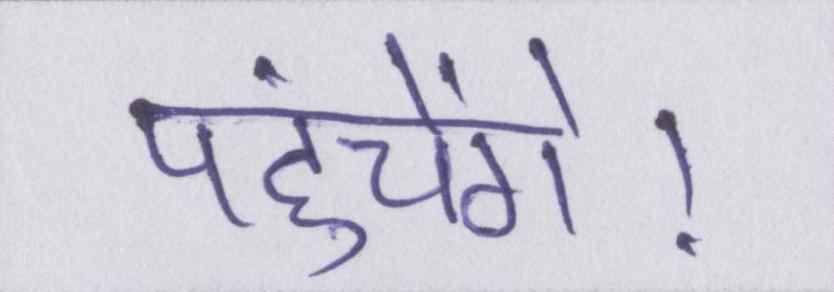 पहुंचेंगे!